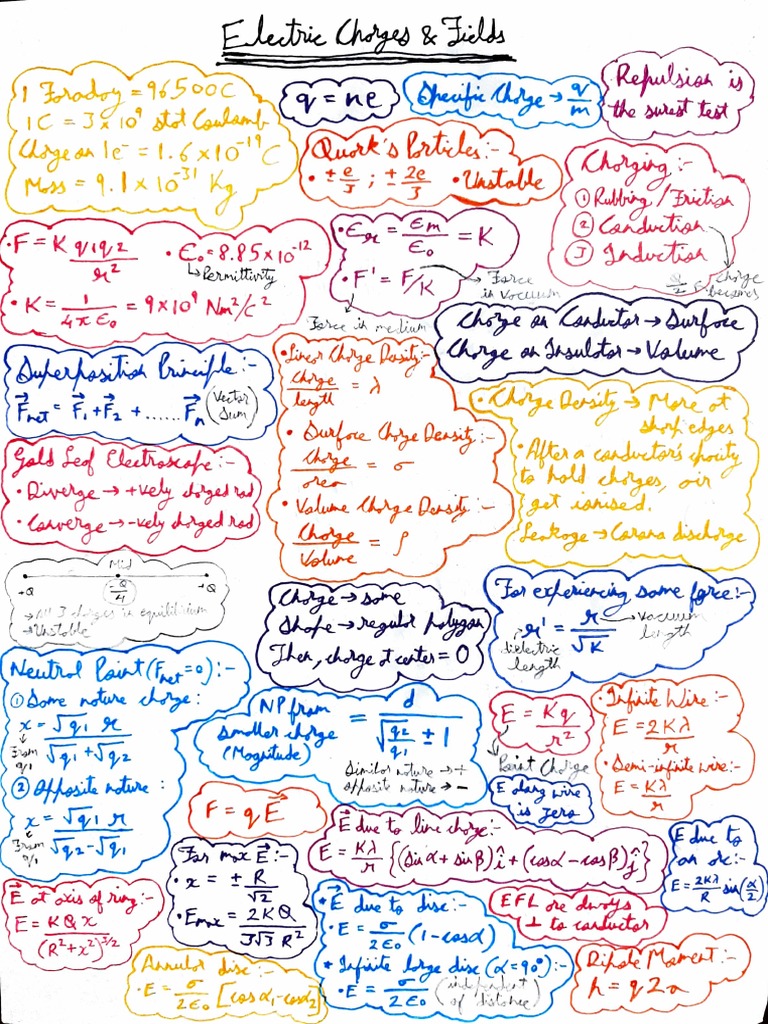 Electric Charges & Fields
1 Faraday = 96500C
1C = 3×10⁹ stat Coulomb
Charge on 1e⁻ = 1.6×10⁻¹⁹ C
Mass = 9.1×10⁻³¹ Kg
q = ne
Specific Charge → q/m
Repulsion is
the surest test
Quark's Particles:-
• ± e/3 ; ± 2e/3 • Unstable
Charging:-
① Rubbing / Friction
② Conduction
③ Induction
charge
becomes
• F = K q₁q₂/r²
• ε₀ = 8.85×10⁻¹²
↳ Permittivity
• K = 1/4πε₀ = 9×10⁹ Nm²/C²
• εr = εm/ε₀ = K
• F' = F/K
Force
in vacuum
Force in medium
Charge on Conductor → Surface
Charge on Insulator → Volume
Superposition Principle:-
F⃗net = F⃗₁ + F⃗₂ + ...... F⃗n (Vector Sum)
• Linear Charge Density:-
charge/length = λ
• Surface Charge Density:-
charge/area = σ
• Volume Charge Density:-
Charge/Volume = ρ
• Charge Density → More at
sharp edges
• After a conductor's capacity
to hold charges, air
get ionised.
Leakage → Corona discharge
Gold Leaf Electroscope:-
• Diverge → +vely charged rod
• Converge → -vely charged rod
Mid
+Q -Q/4 +Q
→ All 3 charges in equilibrium
→ Unstable
Charge → same
Shape → regular polygon
Then, charge at center = 0
For experiencing same force:-
r' = r/√K
→ vacuum
length
dielectric
length
Neutral Point (Fnet=0):-
① Same nature charge:
x = √q₁ r/√q₁+√q₂
From
q₁
② Opposite nature:
x = √q₁ r/√q₂-√q₁
From
q₁
NP from
smaller charge
(Magnitude)
= d/√(q₂/q₁) ± 1
Similar nature → +
opposite nature → -
E = Kq/r²
Point Charge
• Infinite Wire:-
E = 2Kλ/r
• Semi-infinite wire:-
E = Kλ/r
E along wire
is zero
F = qE⃗
E⃗ due to line charge:-
E = Kλ/r {(sinα + sinβ)î + (cosα - cosβ)ĵ}
E due to
an arc:-
E = 2Kλ/R sin(α/2)
For max E⃗:-
• x = ± R/√2
• Emax = 2KQ/3√3 R²
E⃗ at axis of ring:-
E = KQx/(R²+x²)^3/2
• E⃗ due to disc:-
• E = σ/2ε₀ (1-cosα)
• Infinite large disc (α=90°)
• E = σ/2ε₀ (independent
of distance)
EFL are always
⊥ to conductor
Annular disc:-
• E = σ/2ε₀ [cosα₁-cosα₂]
Dipole Moment:-
p = q2a